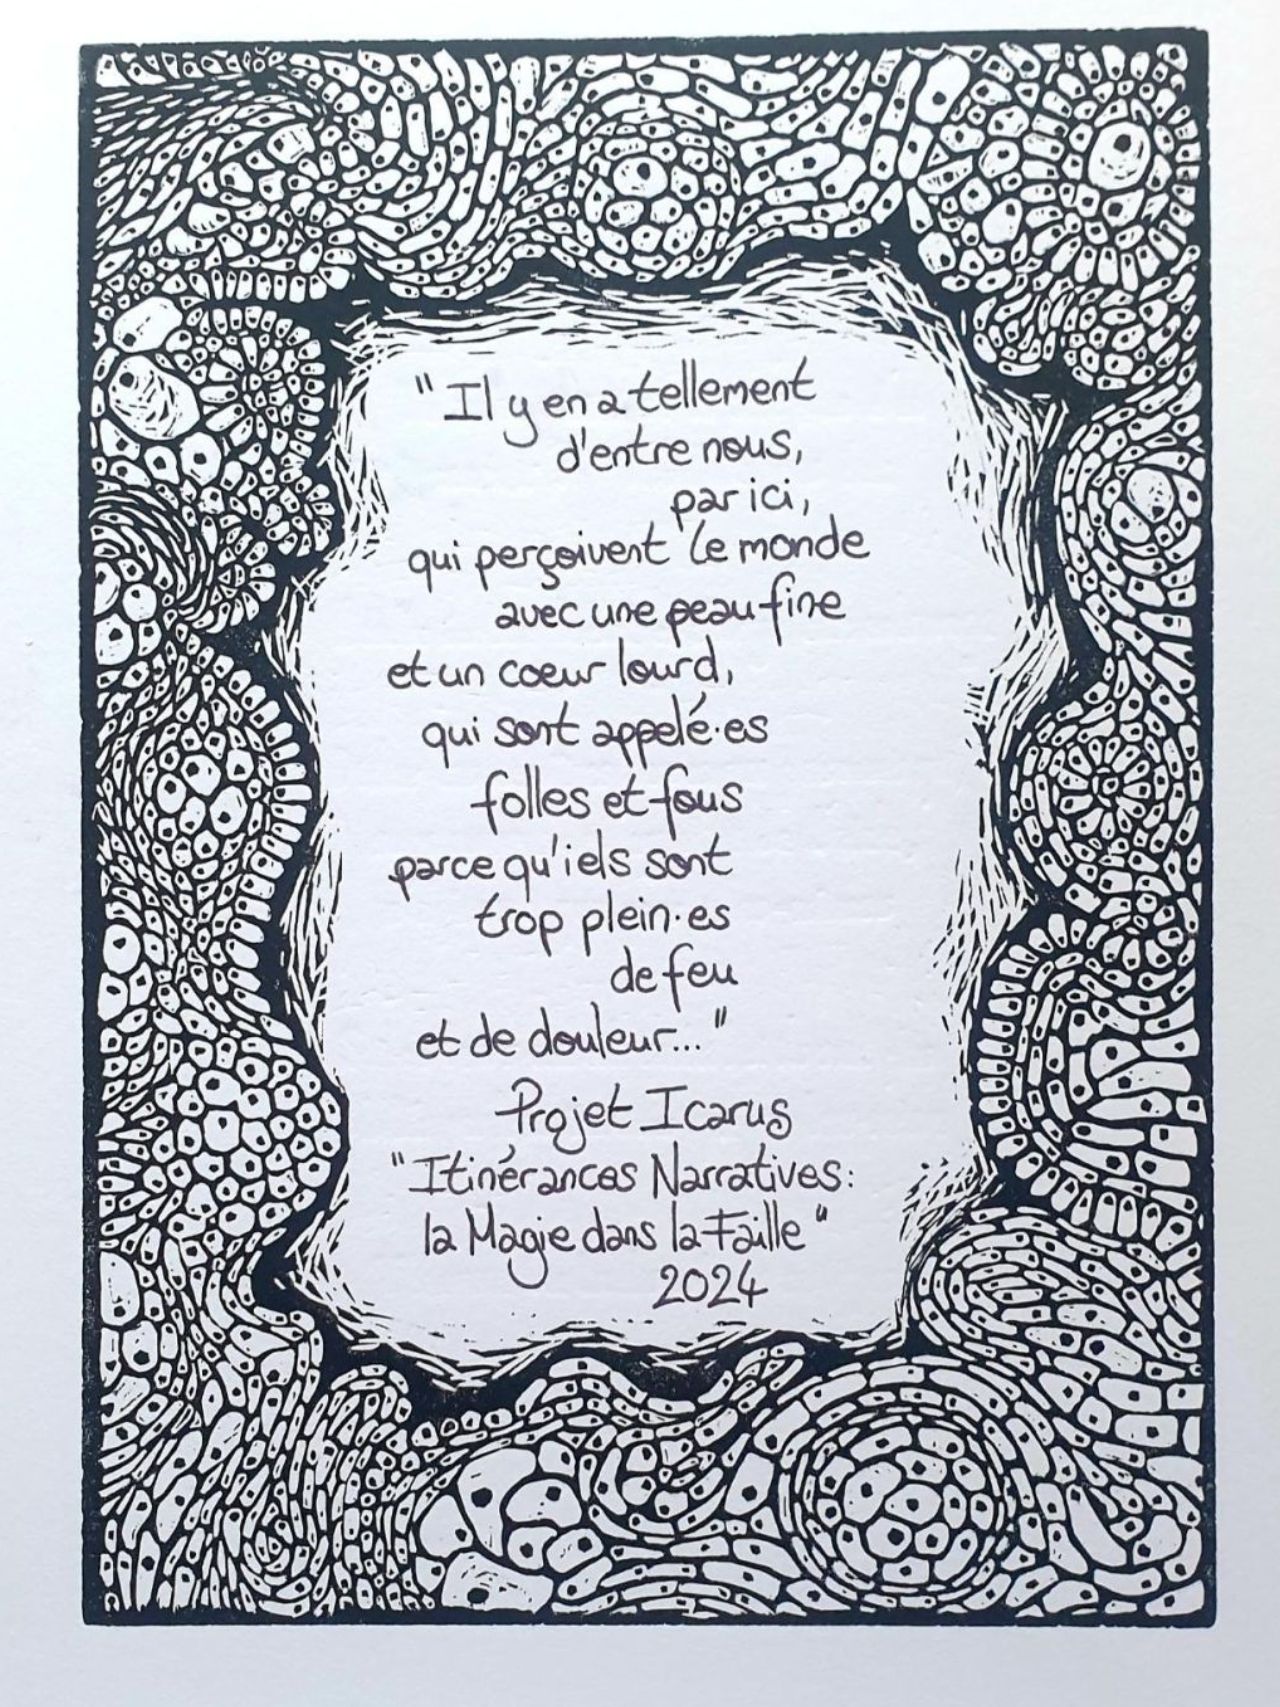 "Il y en a tellement
d'entre nous,
par ici,
qui perçoivent le monde
avec une peau fine
et un coeur lourd,
qui sont appelé·es
folles et fous
parce qu'iels sont
trop plein·es
de feu
et de douleur..."
Projet Icarus
"Itinérances Narratives:
la Magie dans la Faille"
2024